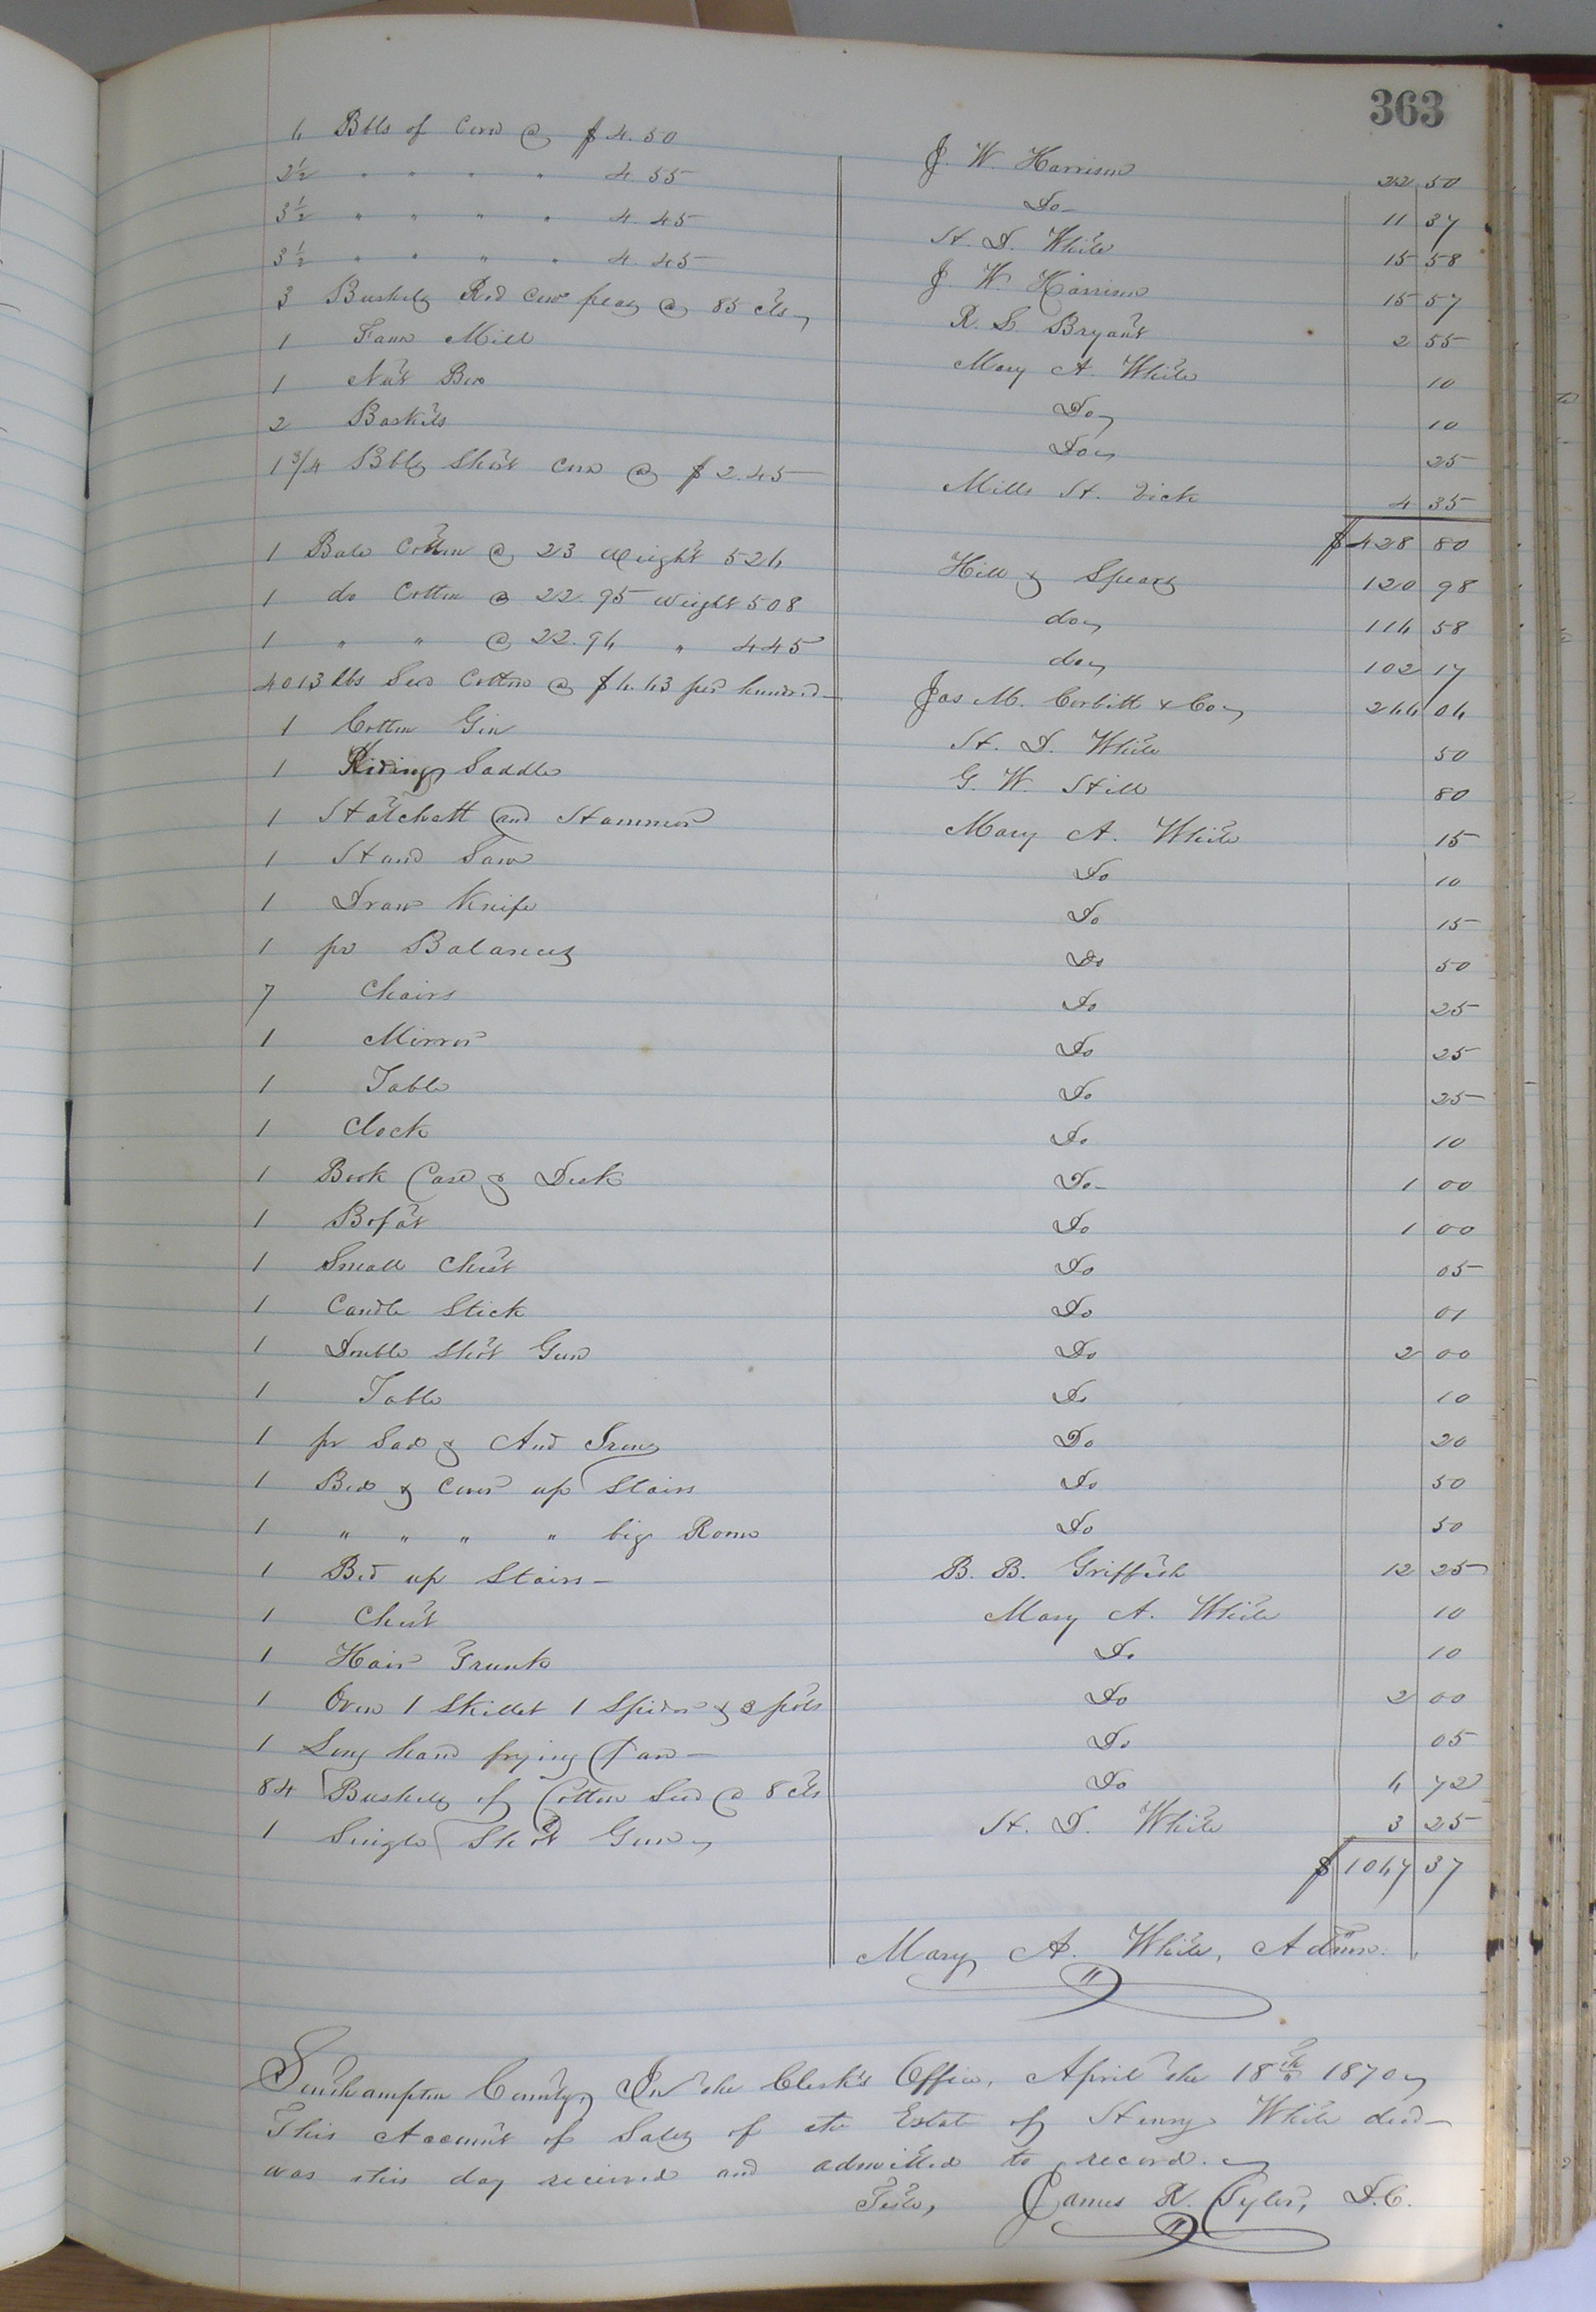 363
6 Bbls of Corn @ $ 4.50 J. W. Harrison 22 50
2½ " " " " 4.55 Do 11 37
3½ " " " " 4.45 H. D. White 15 58
3½ " " " " 4.45 J. W. Harrison 15 57
3 Bushels Red Cow peas @ 85 cts R. S. Bryant 2 55
1 Fann Mill Mary A. White 10
1 Nat Box Do 10
2 Baskets Do 25
1 3/4 Bbls Short Corn @ $ 2.45 Mills H. Vick 4 35
$ 428 80
1 Bale Cotton @ 23 Weight 526 Hill & Spears 120 98
1 do Cotton @ 22.95 Weight 508 do 116 58
1 " " @ 22.96 " 445 do 102 17
4013 lbs Seed Cotton @ $6.63 per hundred Jas M. Corbitt & Co 266 06
1 Cotton Gin H. D. White 50
1 Riding Saddle G. W. Hill 80
1 Hatchett and Hammer Mary A. White 15
1 Hand Saw Do 10
1 Draw Knife Do 15
1 pr Balances Do 50
7 Chairs Do 25
1 Mirror Do 25
1 Table Do 25
1 Clock Do 10
1 Book Case & Desk Do 1 00
1 Bofat Do 1 00
1 Small Chest Do 05
1 Candle Stick Do 01
1 Double Shot Gun Do 2 00
1 Table Do 10
1 pr Sad & And Irons Do 20
1 Bed & Cover up Stairs Do 50
1 " " " " big Room Do 50
1 Bed up Stairs B. B. Griffith 12 25
1 Chest Mary A. White 10
1 Hair Trunk Do 10
1 Oven 1 Skillet 1 Spider & 3 pots Do 2 00
1 Long hand frying Pan Do 05
84 Bushels of Cotton Seed @ 8 cts Do 6 72
1 Single Shot Gun H. D. White 3 25
$ 1067 37
Mary A. White, Admx.
Southampton County, In the Clerk's Office, April the 18th 1870
This Account of Sales of the Estate of Henry White decd
was this day received and admitted to record.
Teste, James R. Tyler, D.C.